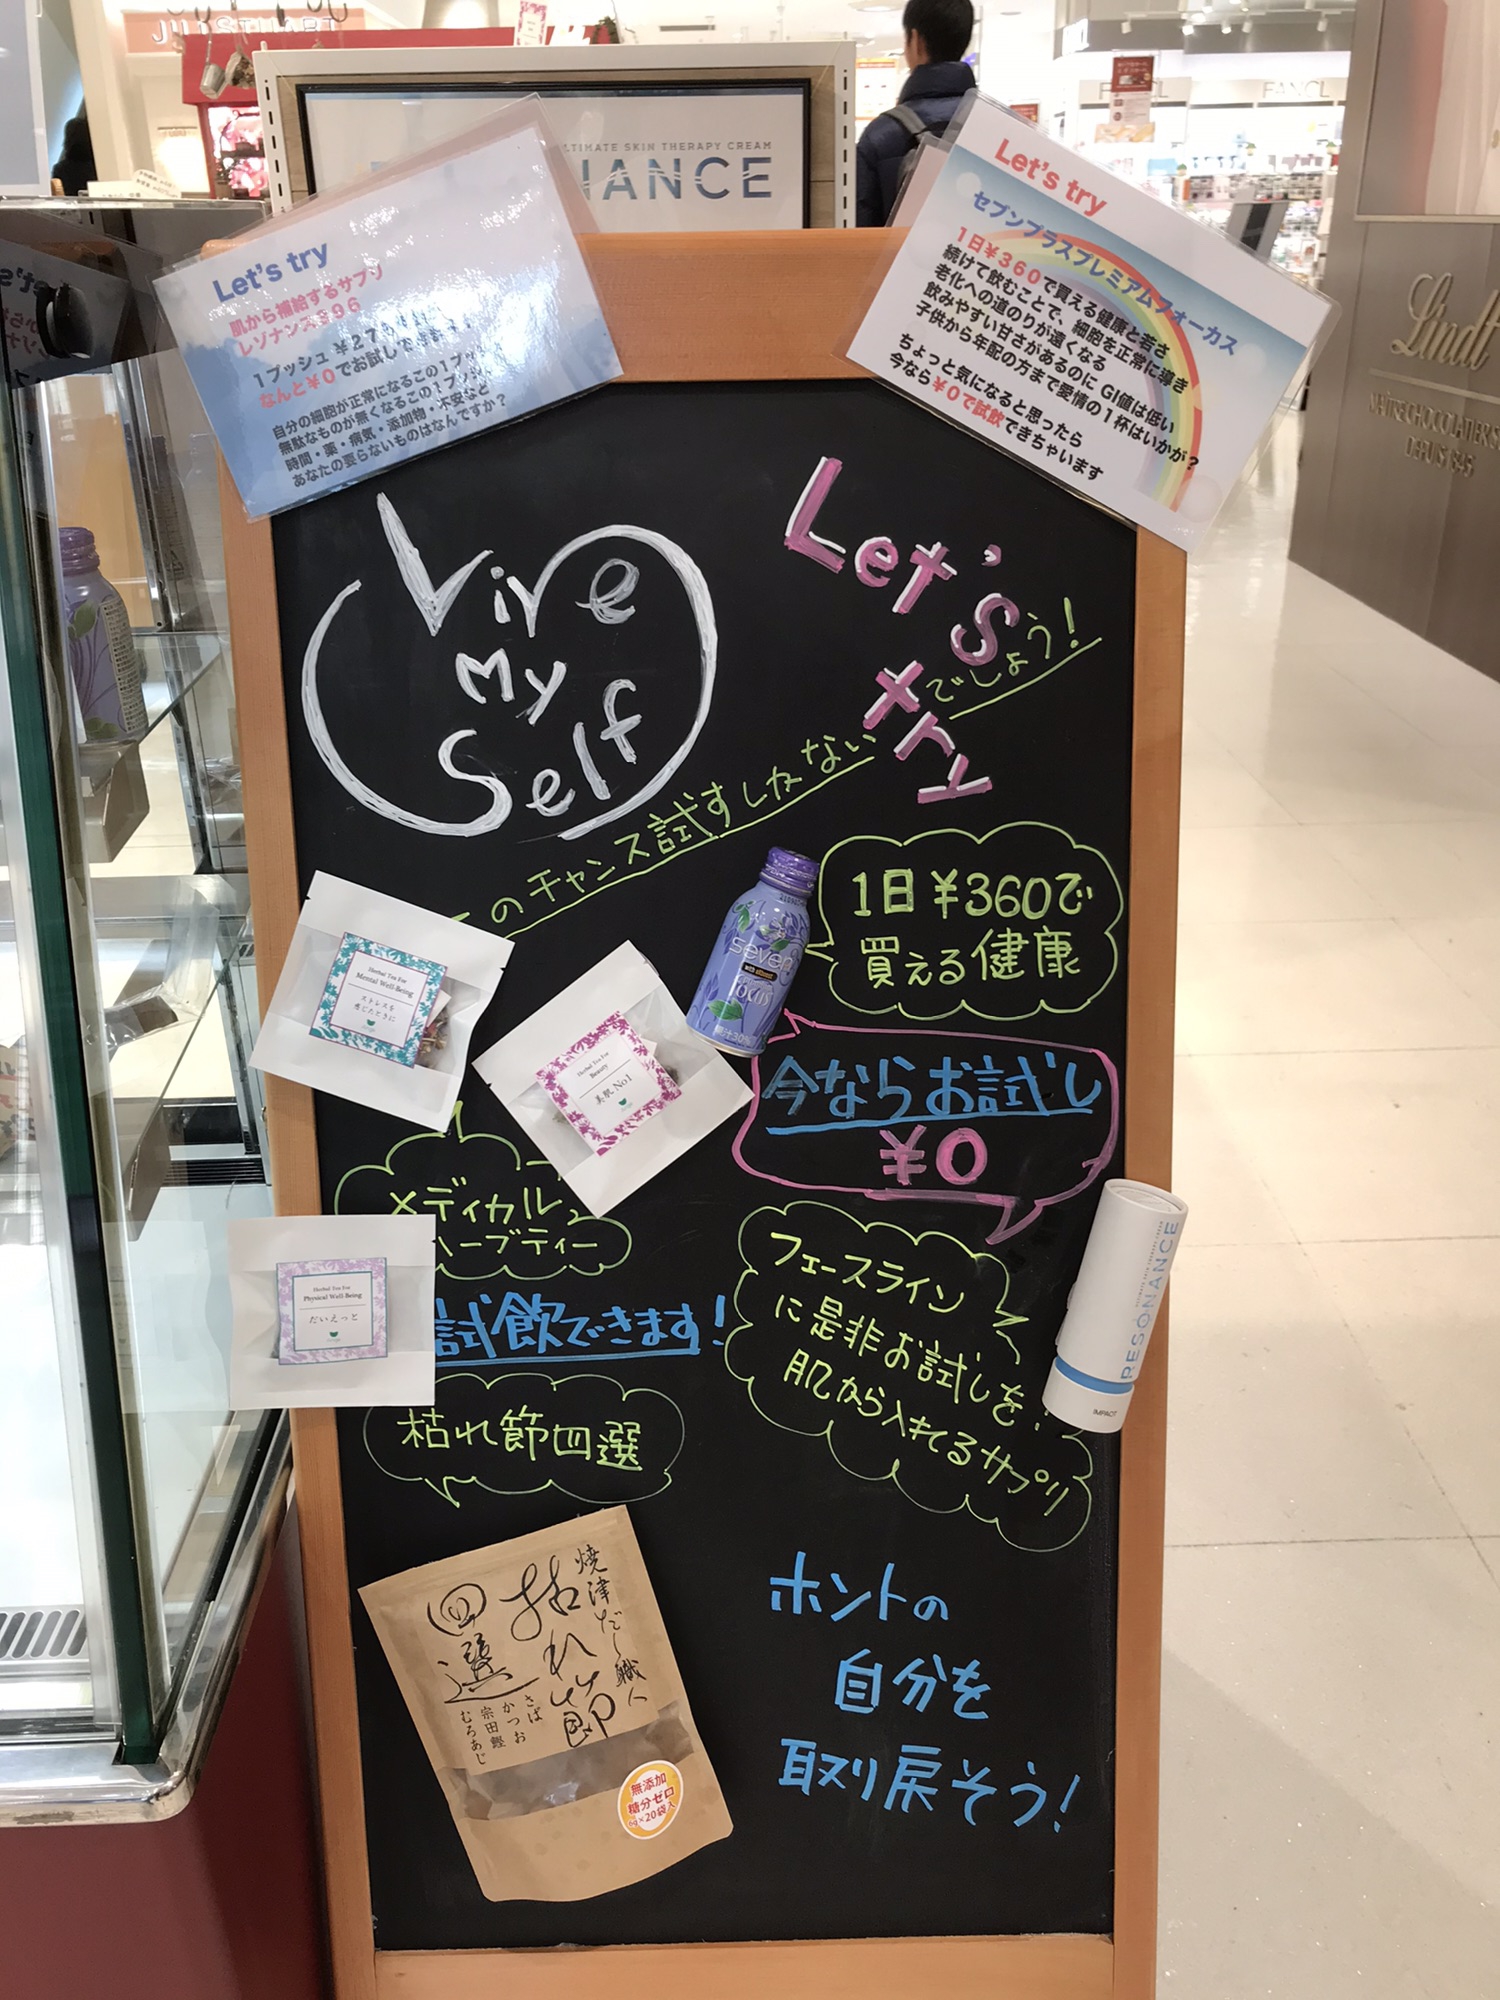 JILLSTUART
ULTIMATE SKIN THERAPY CREAM
FANCL
FANCL
Lindt
MAÎTRE CHOCOLATIER
DEPUIS 1845
Let's try
肌から補給するサプリ
レゾナンス996
1プッシュ ¥27
なんと¥0でお試しできます！
自分の細胞が正常になるこの1プッシュ
無駄なものが無くなるこの1プッシュ
時間・薬・病気・添加物・不安など
あなたの要らないものはなんですか？
Let's try
セブンプラスプレミアムフォーカス
1日¥360で買える健康と若さ
続けて飲むことで、細胞を正常に導き
老化への道のりが遠くなる
飲みやすい甘さがあるのに GI値は低い
子供から年配の方まで愛情の1杯はいかが？
ちょっと気になると思ったら
今なら¥0で試飲できちゃいます
Live
My
Self
Let's
try
このチャンス試すしかない
でしょう！
seven
focus
1日¥360で
買える健康
今ならお試し
¥0
Herbal Tea For
Mental Well-Being
ストレスを
感じたときに
Herbal Tea For
Beauty
美肌 No1
メディカル
ハーブティー
Herbal Tea For
Physical Well-Being
だいえっと
試飲できます！
フェースライン
に是非お試しを！
肌から入れてるサプリ
RESONANCE
IMPACT
枯れ節四選
焼津だし職人
枯れ節
四選
さば
かつお
宗田鰹
むろあじ
無添加
糖分ゼロ
6g×20袋入
ホントの
自分を
取り戻そう！